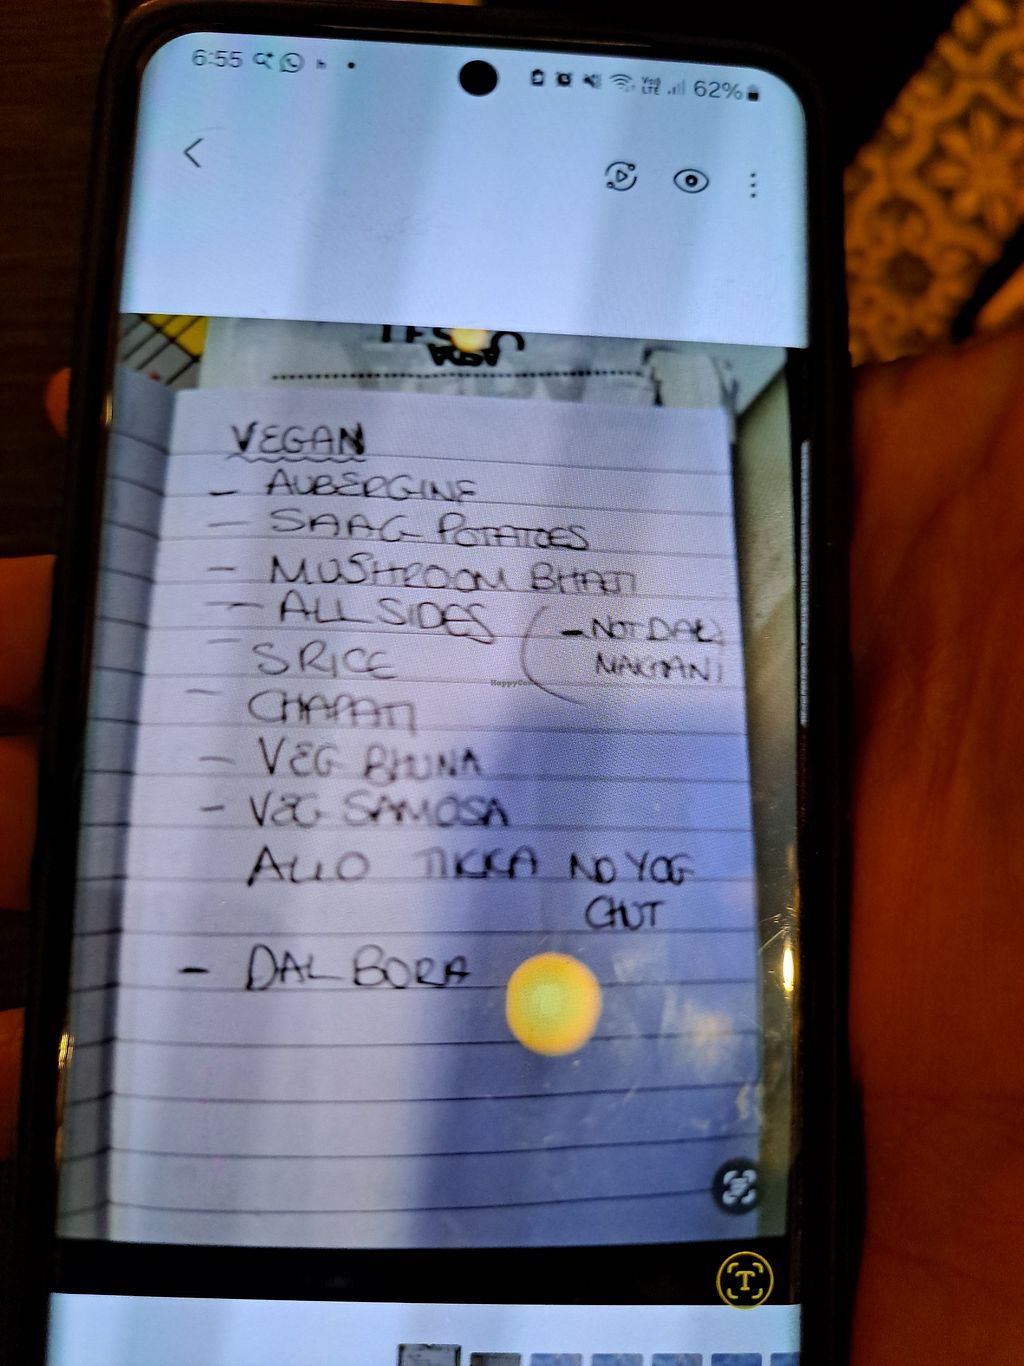 6:55
Vo)) LTE 62%
VEGAN
- AUBERGINE
- SAAG POTATOES
- MUSHROOM BHAJI
- ALL SIDES ( - NOT DAL
MAKHANI
- S RICE
- CHAPATI
- VEG BHUNA
- VEG SAMOSA
ALLO TIKKA NO YOG
CHUT
- DAL BORA
HappyCow
T